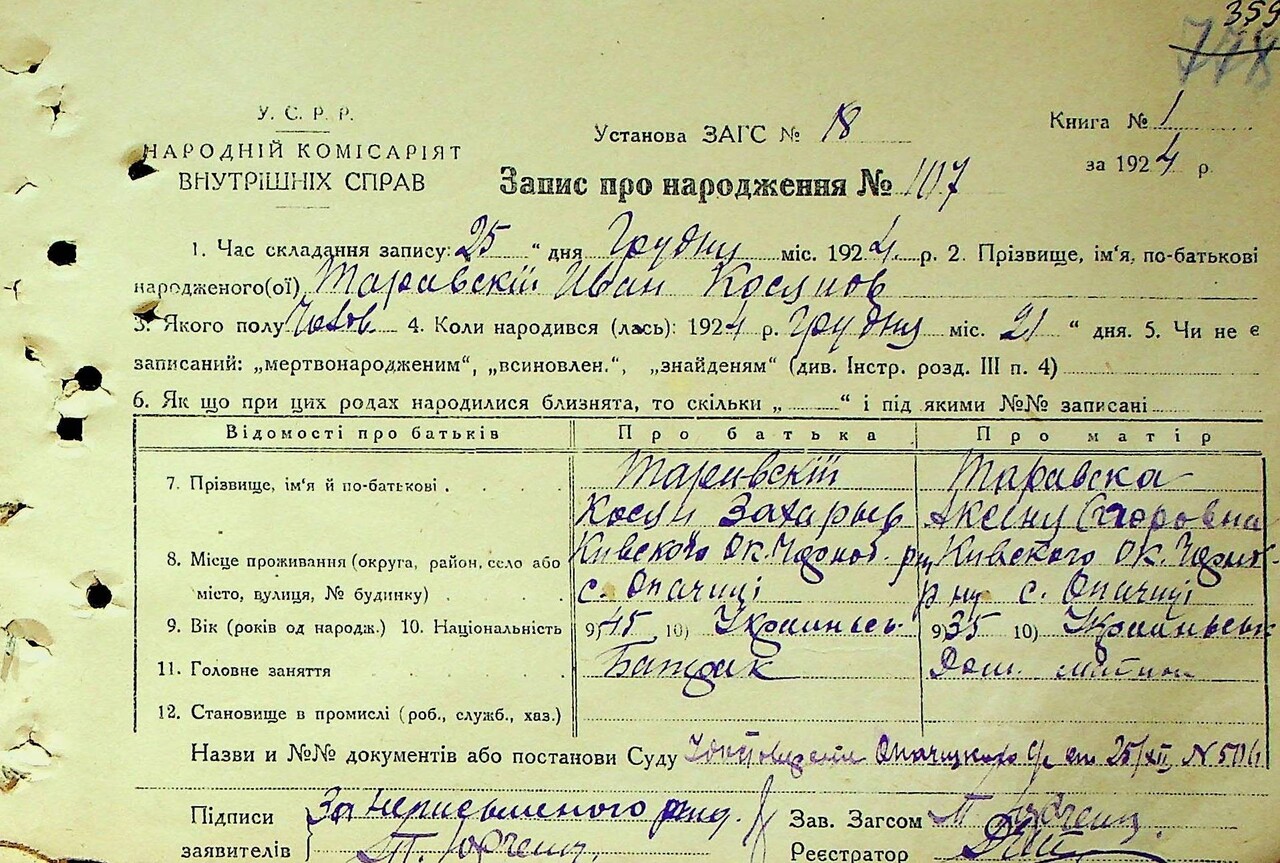 359
778
У. С. Р. Р.
НАРОДНІЙ КОМІСАРІЯТ
ВНУТРІШНІХ СПРАВ
Установа ЗАГС № 18
Книга № 1
за 1924 р.
Запис про народження № 107
1. Час складання запису: 25 " дня Грудня міс. 1924 р. 2. Прізвище, ім'я, по-батькові
народженого(ої) Таравскій Иван Косянов
3. Якого полу Чолов 4. Коли народився (лась): 1924 р. Грудня міс. 21 " дня. 5. Чи не є
записаний: „мертвонародженим", „всиновлен.", „знайденям" (див. Інстр. розд. III п. 4)
6. Як що при цих родах народилися близнята, то скільки „ " і під якими №№ записані
Відомості про батьків Про батька Про матір
7. Прізвище, ім'я й по-батькові . Таравскій Таравска
Косян Захарыев Аксен
8. Місце проживання (округа, район, село або Кивского Ок. Кивского Ок.
місто, вулиця, № будинку) . с. Опачиці р ну с. Опачиці
9. Вік (років од народж.) 10. Національність 9) 45 10) Украинськ 9) 35 10) Украиньськ
11. Головне заняття Батрак Дом.
12. Становище в промислі (роб., служб., хаз.)
Назви и №№ документів або постанови Суду Опачицкого от 25/XII N 506
Підписи За неписьменного
заявителів
Зав. Загсом
Реєстратор